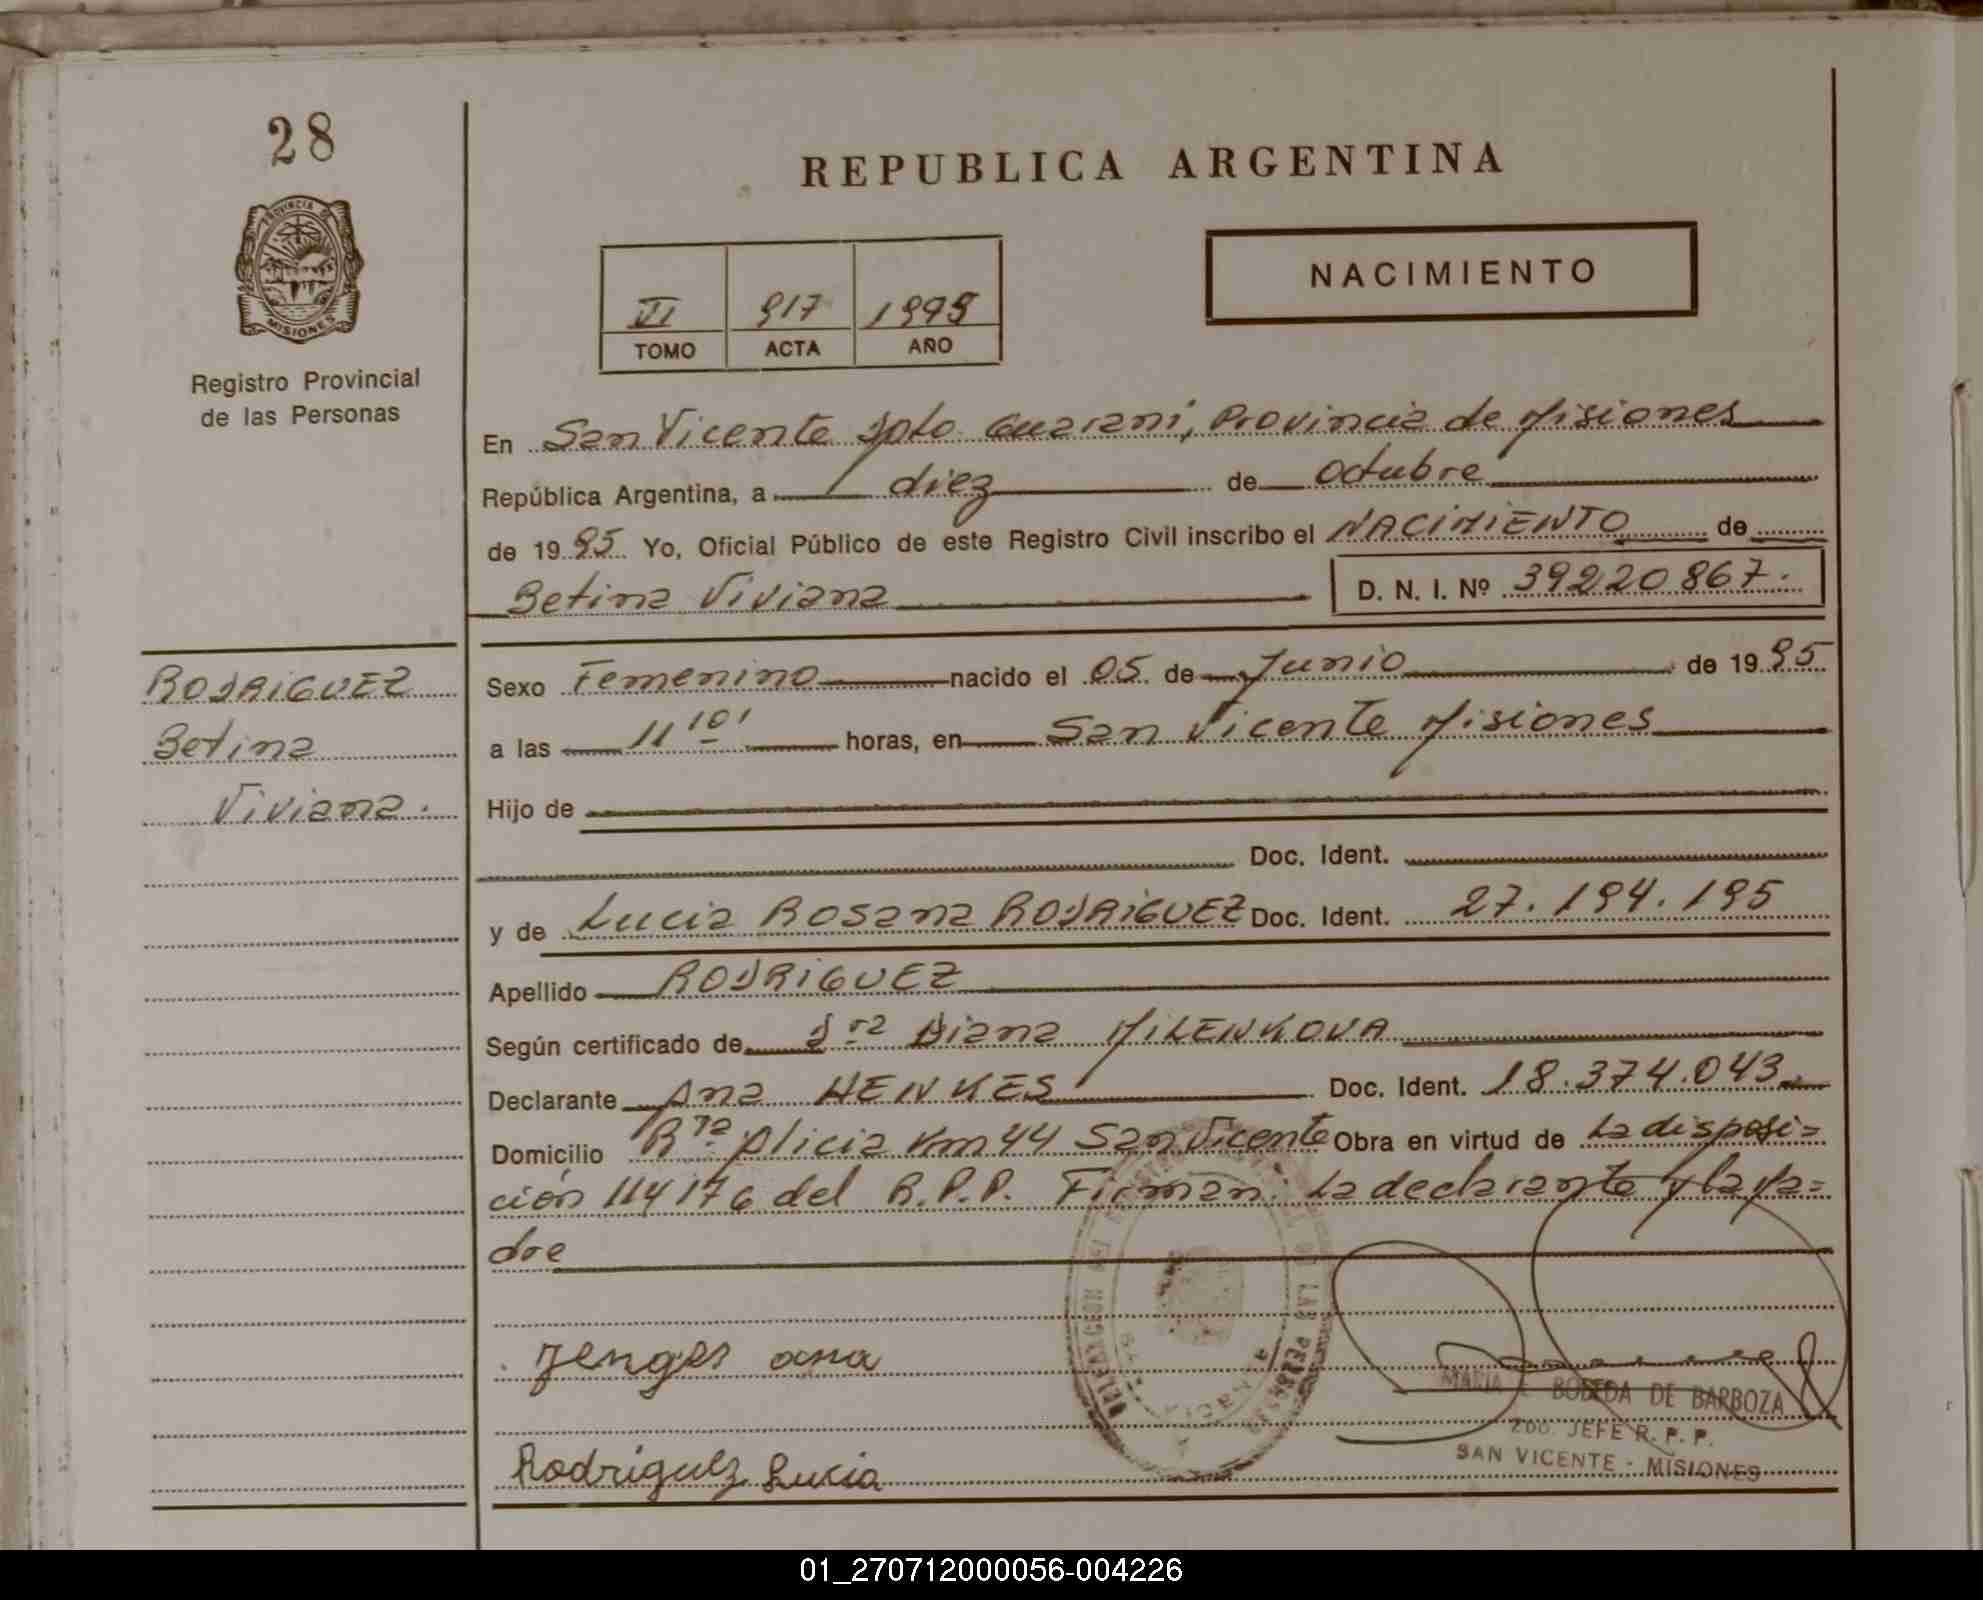 28
REPUBLICA ARGENTINA
PROVINCIA DE
MISIONES
Registro Provincial
de las Personas
NACIMIENTO
VI 917 1995
TOMO ACTA AÑO
En San Vicente Dpto Guarani, Provincia de Misiones
República Argentina, a diez de octubre
de 1995 Yo, Oficial Público de este Registro Civil inscribo el NACIMIENTO de
Betina Viviana D. N. I. Nº 39220867.
RODRIGUEZ
Betina
Viviana.
Sexo Femenino nacido el 05 de Junio de 1995
a las 11 101 horas, en San Vicente Misiones
Hijo de
Doc. Ident.
y de Lucia Rosana RODRIGUEZ Doc. Ident. 27.194.195
Apellido RODRIGUEZ
Según certificado de Dra Diana MILENKOVA
Declarante Ana HENKES Doc. Ident. 18.374.043.
Domicilio Rta Alicia Km 44 San Vicente Obra en virtud de La disposi=
ción 114176 del R.P.P. Firman: La declarante y la pa=
dre
Jenges ana
MARIA BOBEDA DE BARBOZA
2DO. JEFE R. P. P.
SAN VICENTE - MISIONES
Rodriguez Lucia
01_270712000056-004226